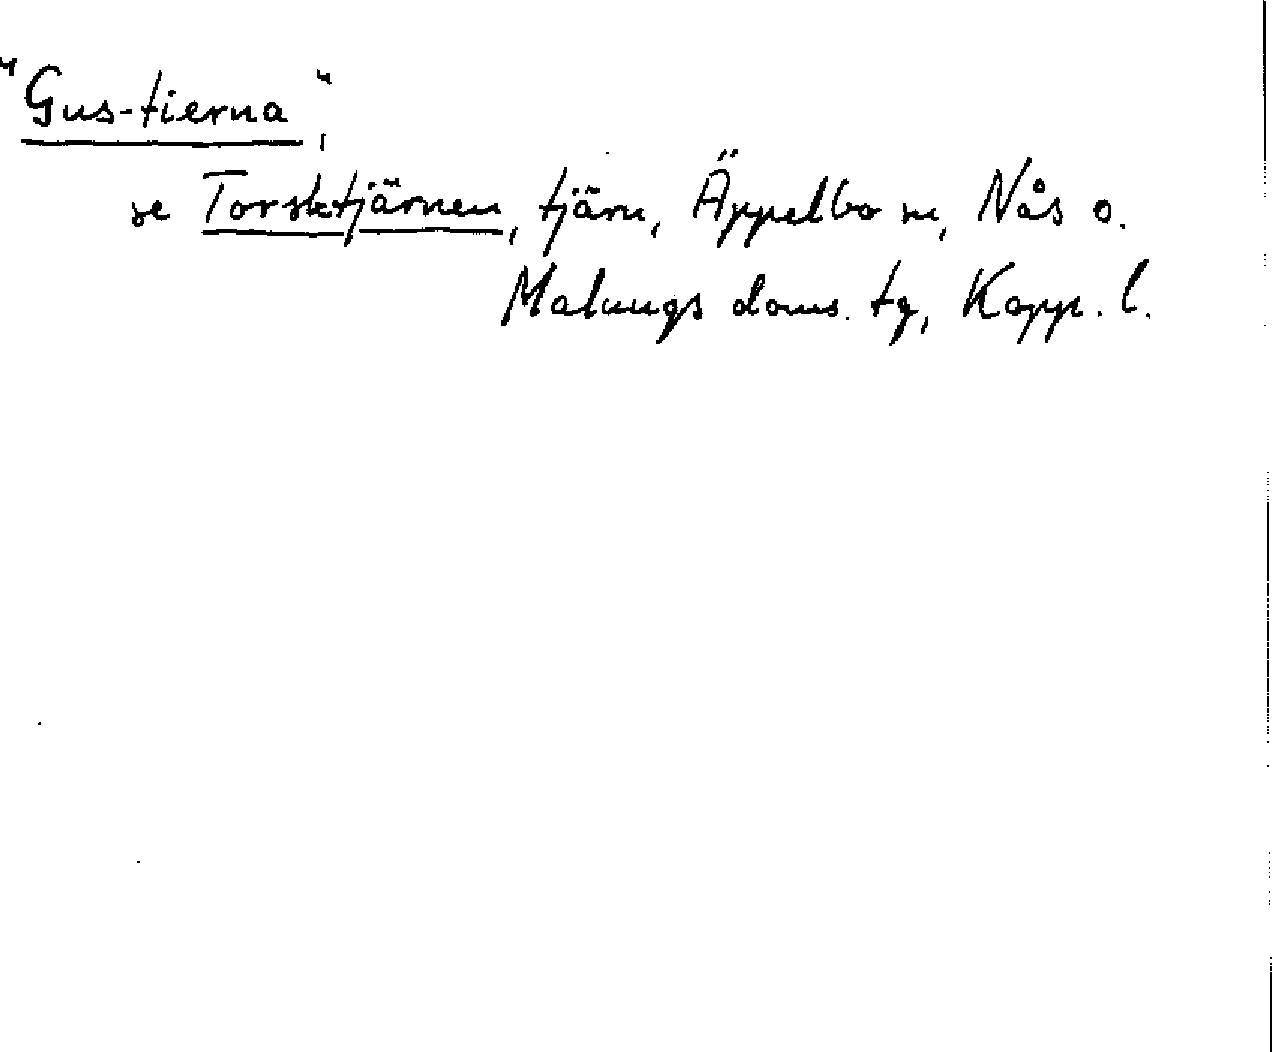 "Gus-tierna",
se Torsktjärnen, tjärn, Äppelbo sn, Nås o.
Malungs doms. tg, Kopp. l.